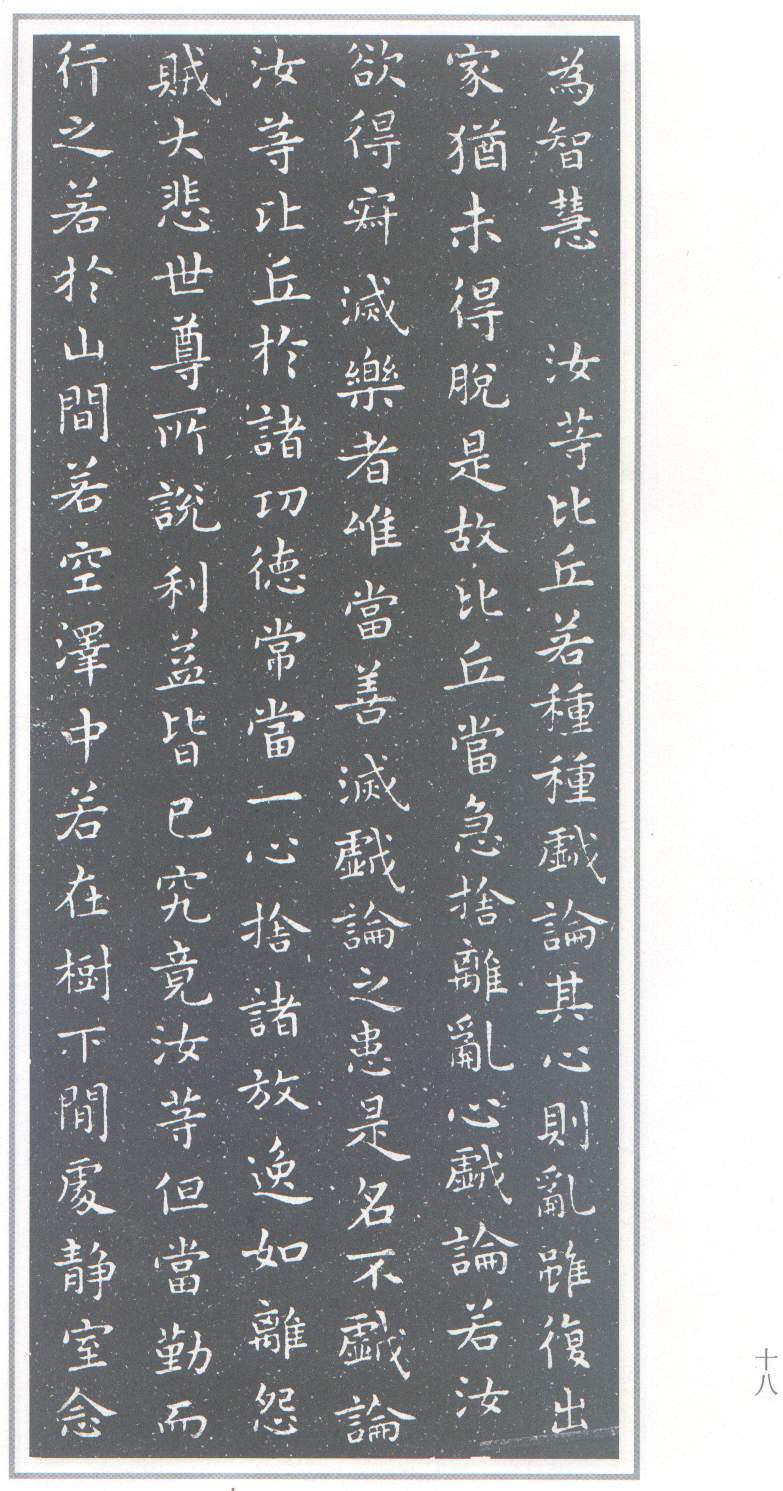 為智慧　汝等比丘若種種戱論其心則亂雖復出
家猶未得脫是故比丘當急捨離亂心戱論若汝
欲得寂滅樂者唯當善滅戱論之患是名不戱論
汝等比丘於諸功德常當一心捨諸放逸如離怨
賊大悲世尊所說利益皆已究竟汝等但當勤而
行之若於山間若空澤中若在樹下閒處静室念
十八